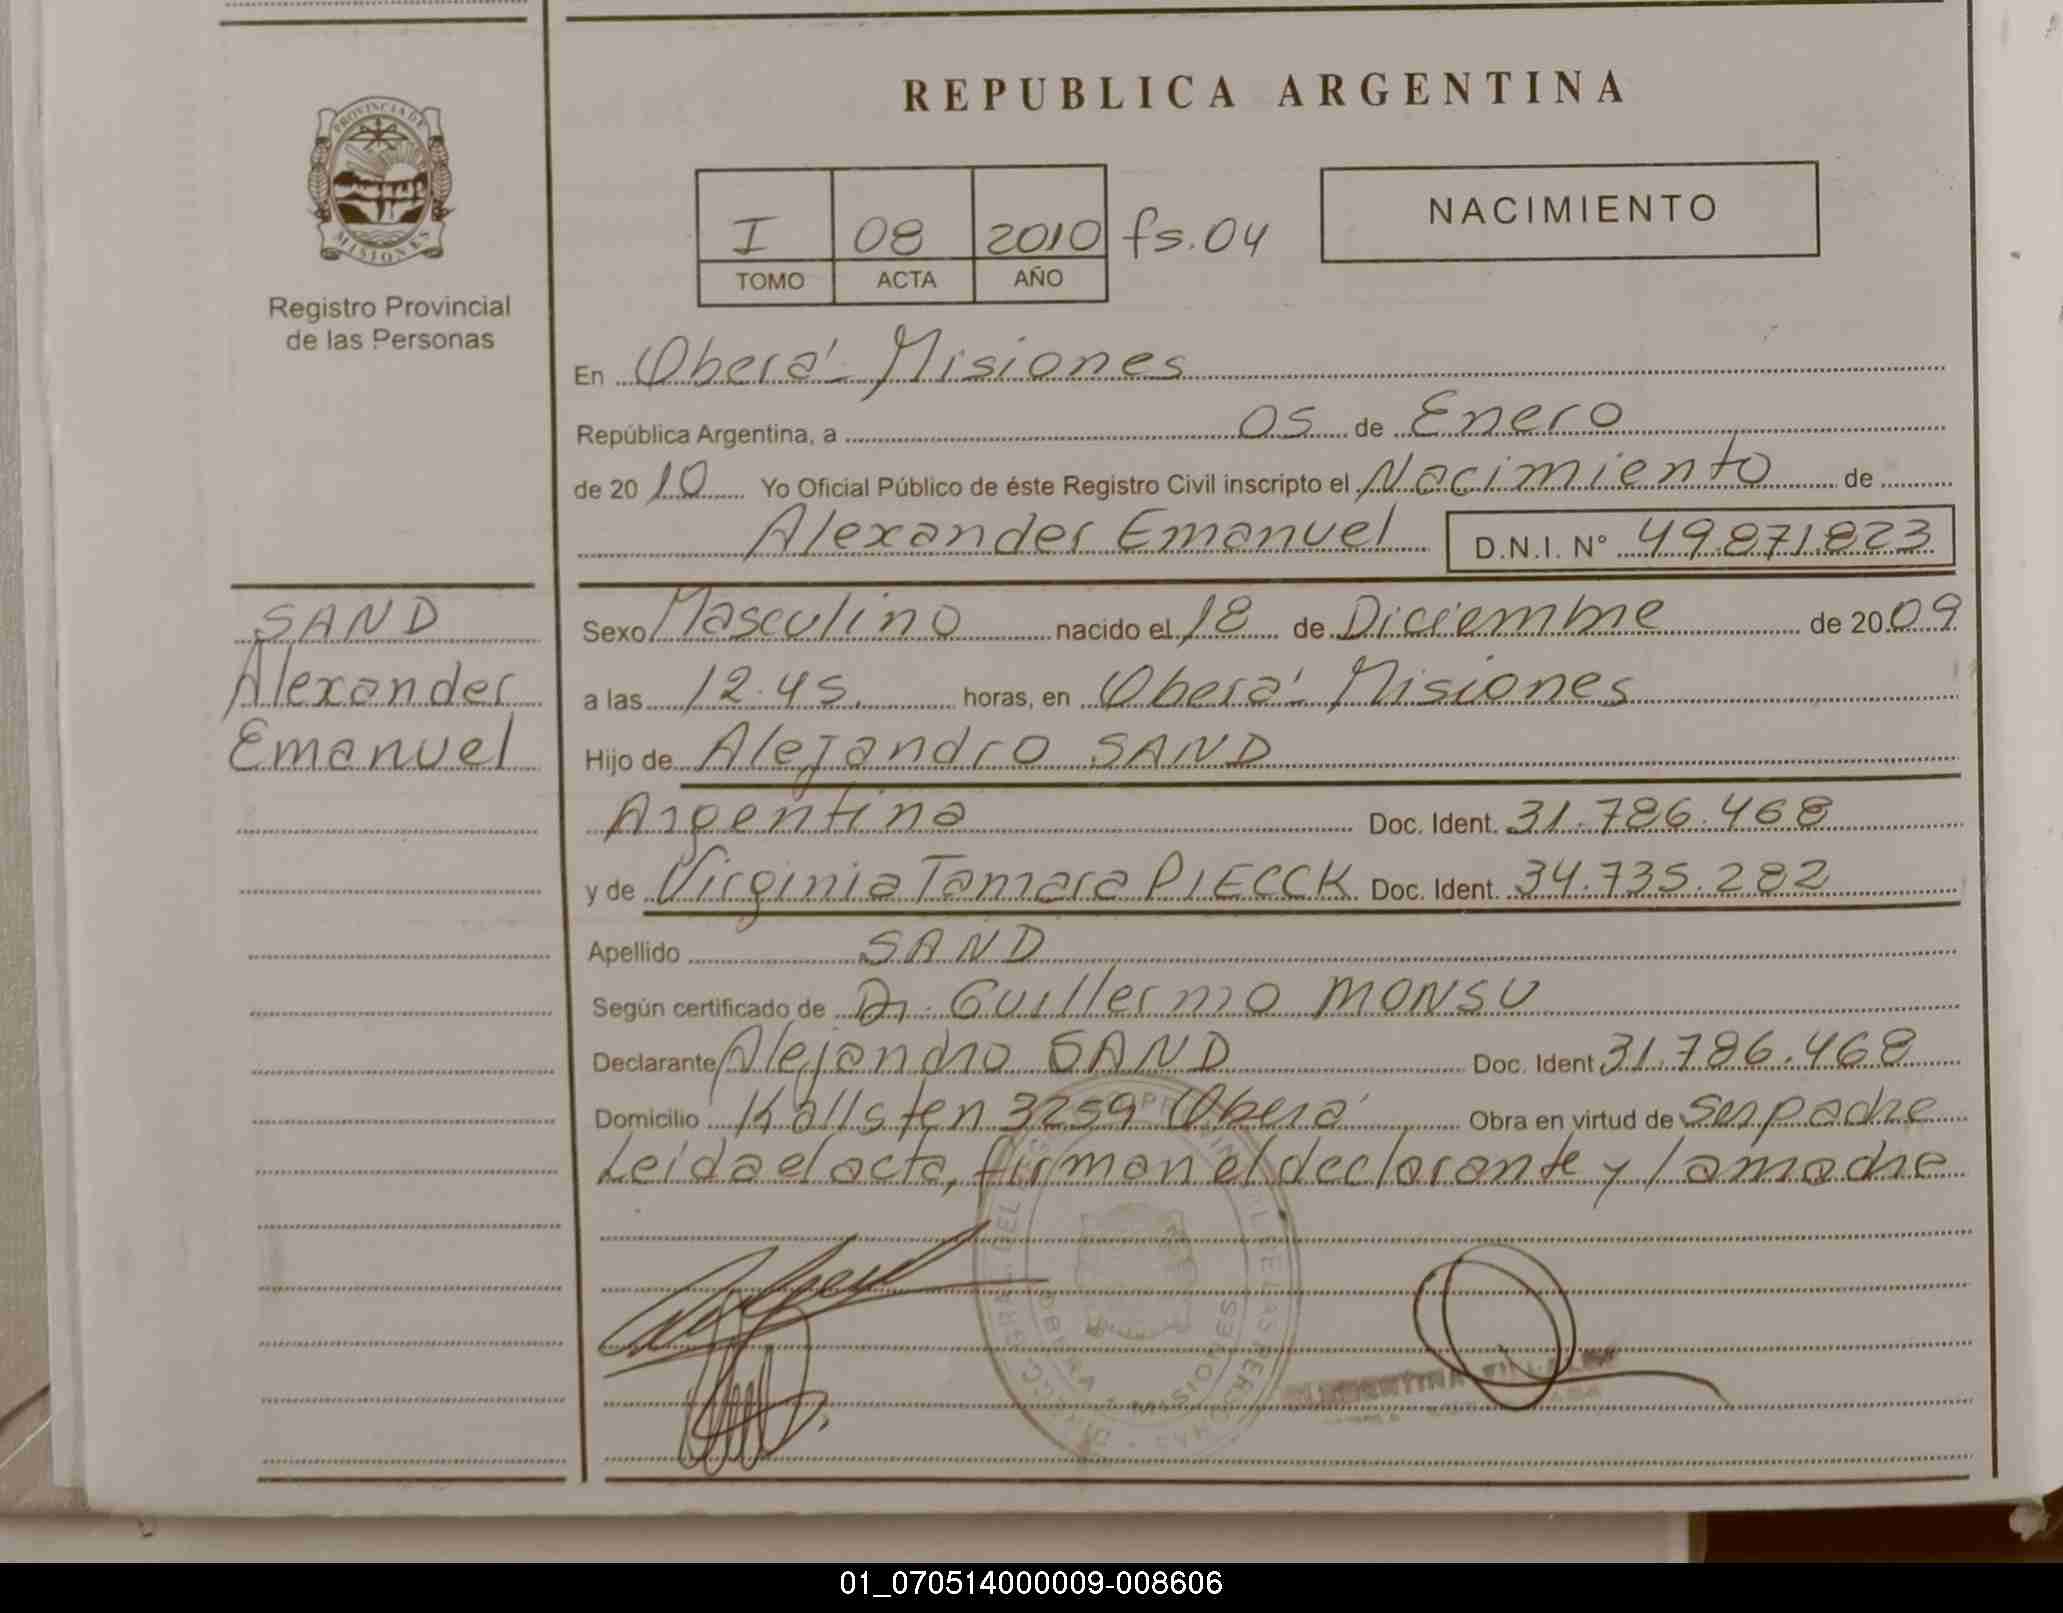 REPUBLICA ARGENTINA
PROVINCIA DE
MISIONES
Registro Provincial
de las Personas
I 08 2010 fs. 04
TOMO ACTA AÑO
NACIMIENTO
En Oberá - Misiones
República Argentina, a 05 de Enero
de 2010 Yo Oficial Público de éste Registro Civil inscripto el Nacimiento de
Alexander Emanuel D.N.I. Nº 49.871.823
SAND
Alexander
Emanuel
Sexo Masculino nacido el 18 de Diciembre de 2009
a las 12.45. horas, en Oberá - Misiones
Hijo de Alejandro SAND
Argentina Doc. Ident. 31.786.468
y de Virginia Tamara PIECCK Doc. Ident. 34.735.282
Apellido SAND
Según certificado de Dr. Guillermo MONSU
Declarante Alejandro SAND Doc. Ident 31.786.468
Domicilio Kallsten 3259 Oberá Obra en virtud de ser padre
Leida el acta, firman el declarante y la madre
OBERA - MISIONES
01_070514000009-008606